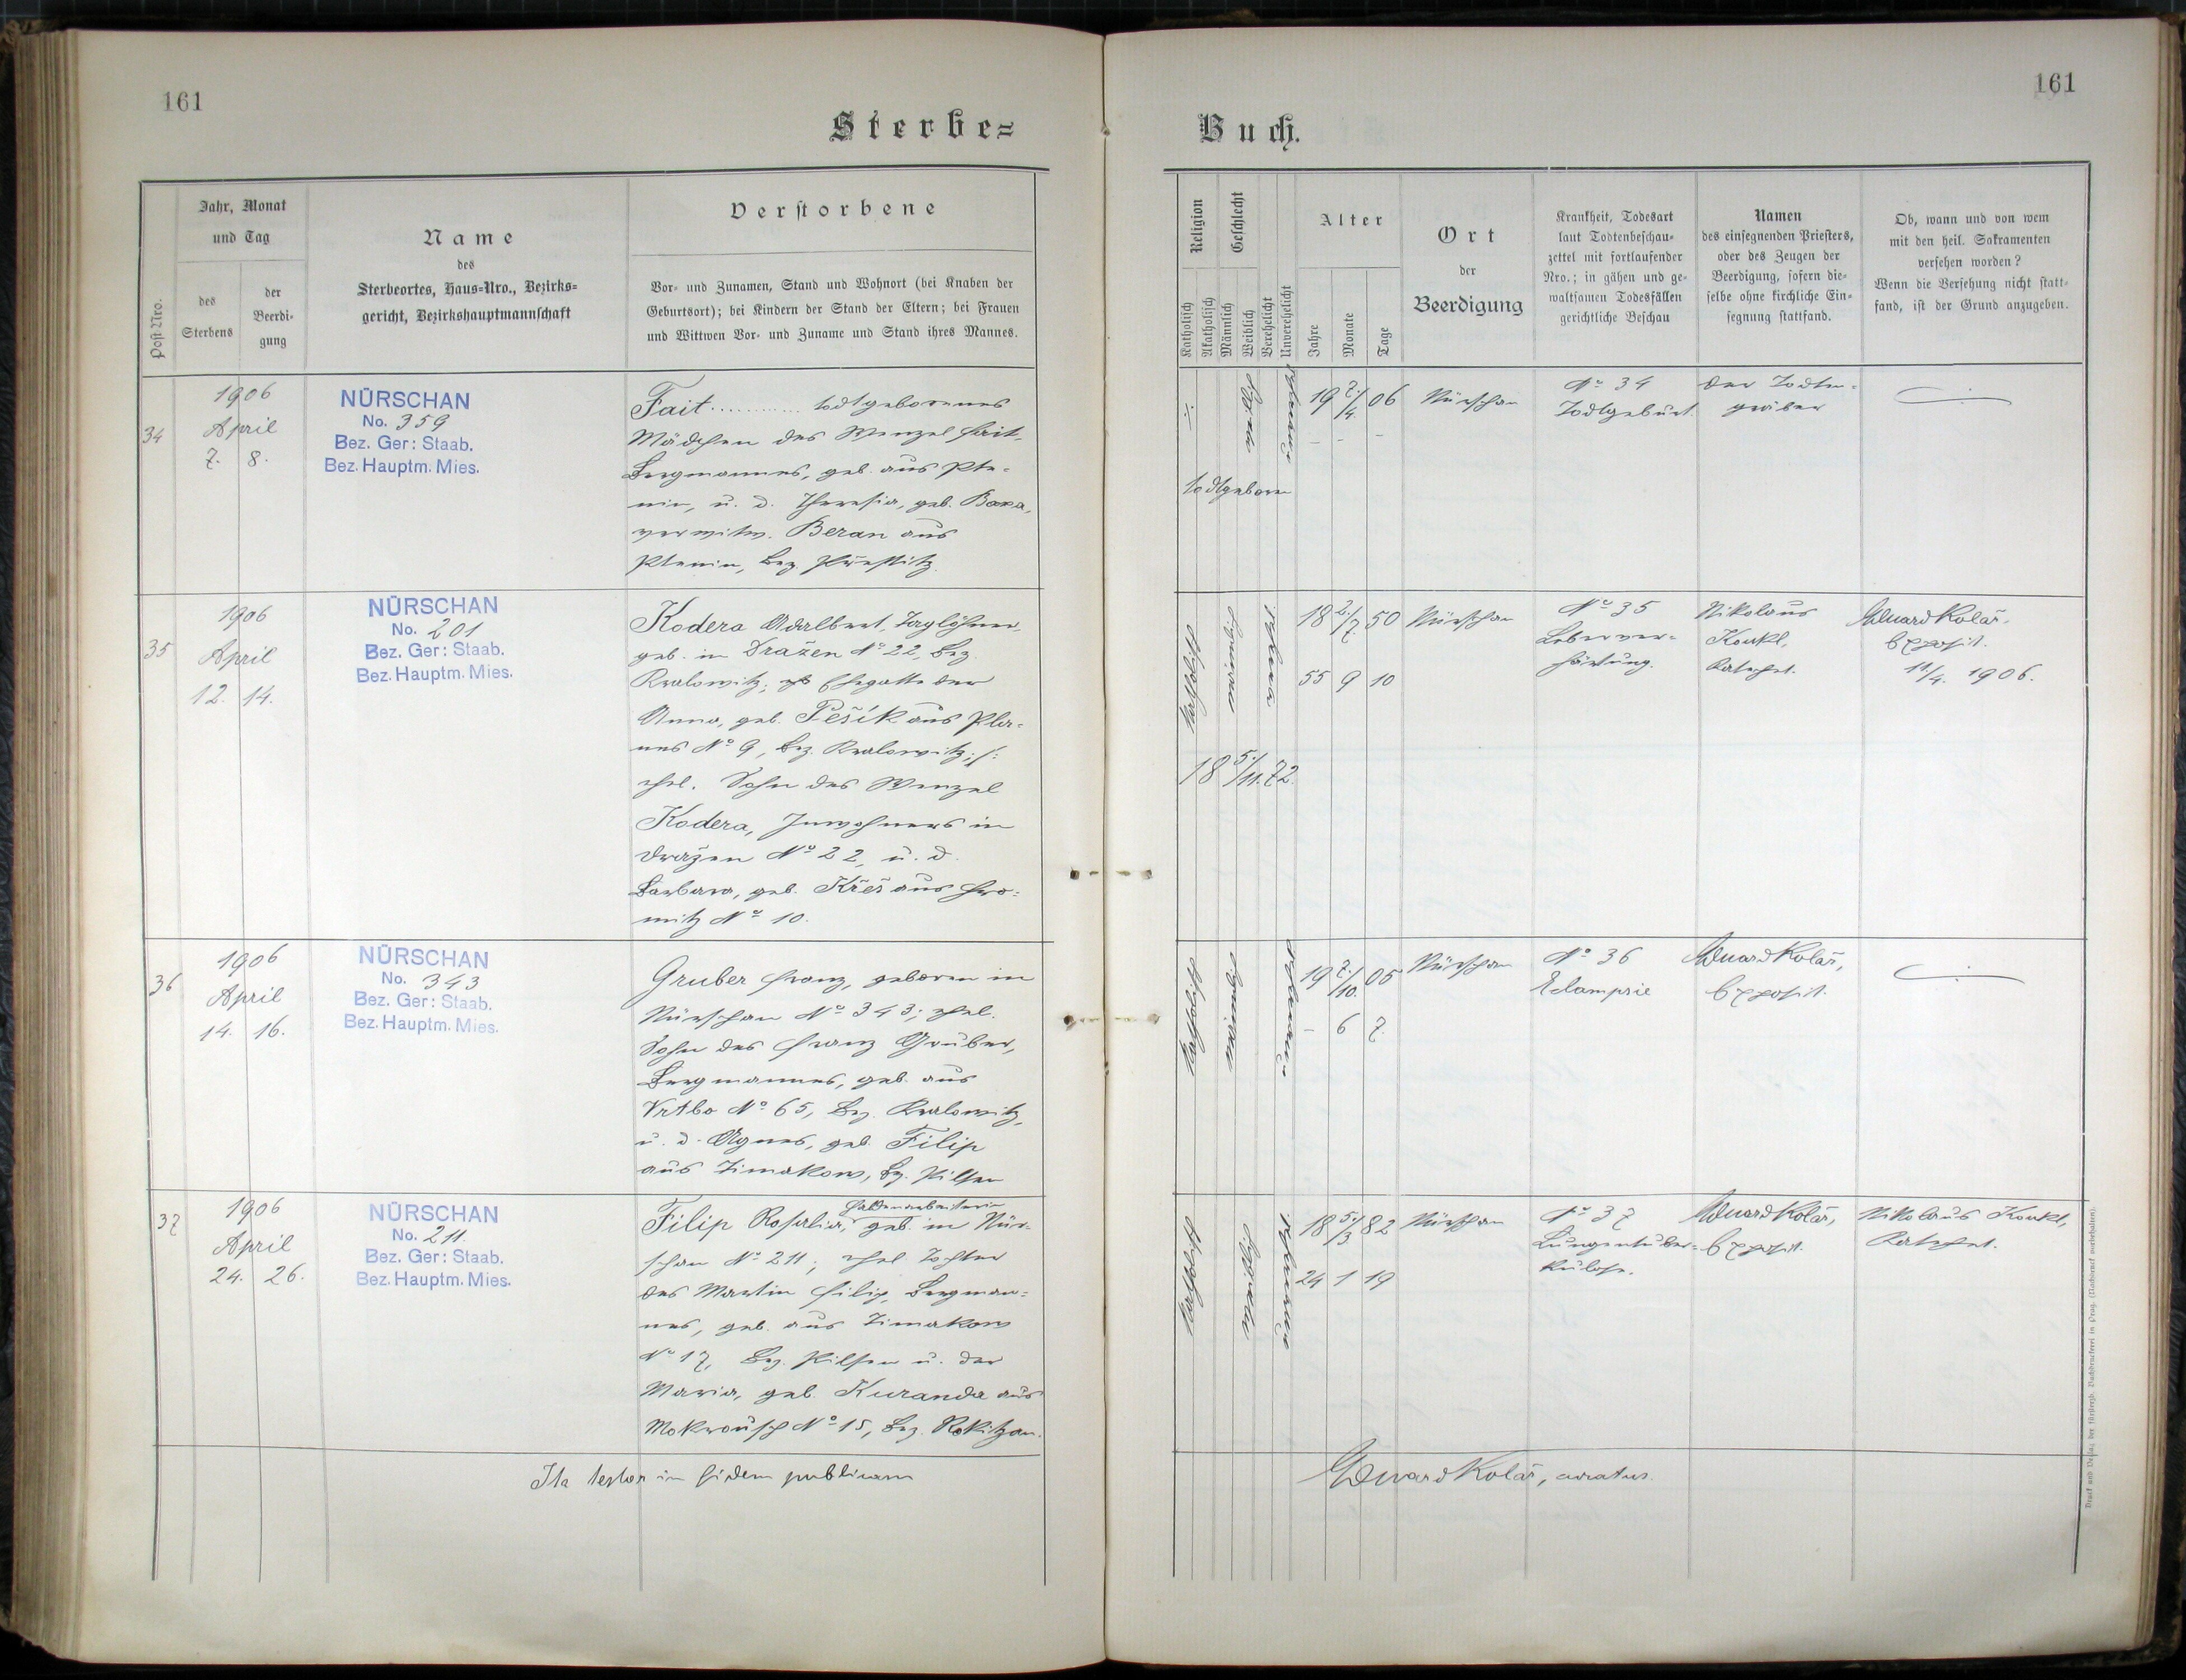 161
161
Sterbe-
Buch.
Post-Nro.
Jahr, Monat
und Tag
des
Sterbens
der
Beerdi-
gung
Name
des
Sterbeortes, Haus-Nro., Bezirks-
gericht, Bezirkshauptmannschaft
Verstorbene
Vor- und Zunamen, Stand und Wohnort (bei Knaben der
Geburtsort); bei Kindern der Stand der Eltern; bei Frauen
und Wittwen Vor- und Zuname und Stand ihres Mannes.
Religion
Katholisch
Akatholisch
Geschlecht
Männlich
Weiblich
Verehelicht
Unverehelicht
Alter
Jahre
Monate
Tage
Ort
der
Beerdigung
Krankheit, Todesart
laut Todtenbeschau-
zettel mit fortlaufender
Nro.; in gähen und ge-
waltsamen Todesfällen
gerichtliche Beschau
Namen
des einsegnenden Priesters,
oder des Zeugen der
Beerdigung, sofern die-
selbe ohne kirchliche Ein-
segnung stattfand.
Ob, wann und von wem
mit den heil. Sakramenten
versehen worden?
Wenn die Versehung nicht statt-
fand, ist der Grund anzugeben.
34
1906
April
7. 8.
NÜRSCHAN
No. 359
Bez. Ger: Staab.
Bez. Hauptm. Mies.
Fait .......... todtgeborenes
Mädchen des Wenzel Fait,
Bergmannes, geb. aus Ple-
nin, u. d. Theresia, geb. Baxa,
verwitw. Beran aus
Plenin, Bez. Přestitz.
todtgeboren
19 7/4 06
- - -
Nürschan
No 34
Todtgeburt.
Der Todten-
gräber
35
1906
April
12. 14.
NÜRSCHAN
No. 201
Bez. Ger: Staab.
Bez. Hauptm. Mies.
Kodera Adalbert, Taglöhner,
geb. in Dražen No 22, Bez.
Kralowitz; Ehegatte der
Anna, geb. Pešík aus Pla-
nes No 9, Bez. Kralowitz; /:
ehel. Sohn des Wenzel
Kodera, Inwohners in
Dražen No 22, u. d.
Barbara, geb. Kreš aus Hro-
mitz No 10.
Katholisch
18 5/11. 72.
18 2./7. 50
55 9 10
Nürschan
No 35
Leberver-
härtung.
Nikolaus
Koukl,
Katechet.
Eduard Kolář,
Exposit.
11/4. 1906.
36
1906
April
14. 16.
NÜRSCHAN
No. 343
Bez. Ger: Staab.
Bez. Hauptm. Mies.
Gruber Franz, geboren in
Nürschan No 343; ehel.
Sohn des Franz Gruber,
Bergmannes, geb. aus
Vrtbo No 65, Bez. Kralowitz,
u. d. Agnes, geb. Filip
aus Timakow, Bz. Pilsen
Katholisch
19 7./10. 05
- 6 7.
Nürschan
No 36
Eklampsie
Eduard Kolář,
Exposit.
37
1906
April
24. 26.
NÜRSCHAN
No. 211.
Bez. Ger: Staab.
Bez. Hauptm. Mies.
Haldenarbeiterin
Filip Rosalia, geb. in Nür-
schan No 211; ehel. Tochter
des Martin Filip, Bergman-
nes, geb. aus Timakow
No 17, Bez. Pilsen u. der
Maria, geb. Kuranda aus
Mokrousch No 15, Bez. Rokitzan.
Katholisch
18 5./3 82
24 1 19
Nürschan
No 37
Lungentuber-
kulose.
Eduard Kolář,
Exposit.
Nikolaus Koukl,
Katechet.
Ita testor in fidem publicam
Eduard Kolář, curatus.
Druck und Verlag der fürsterzb. Buchdruckerei in Prag. (Nachdruck vorbehalten).